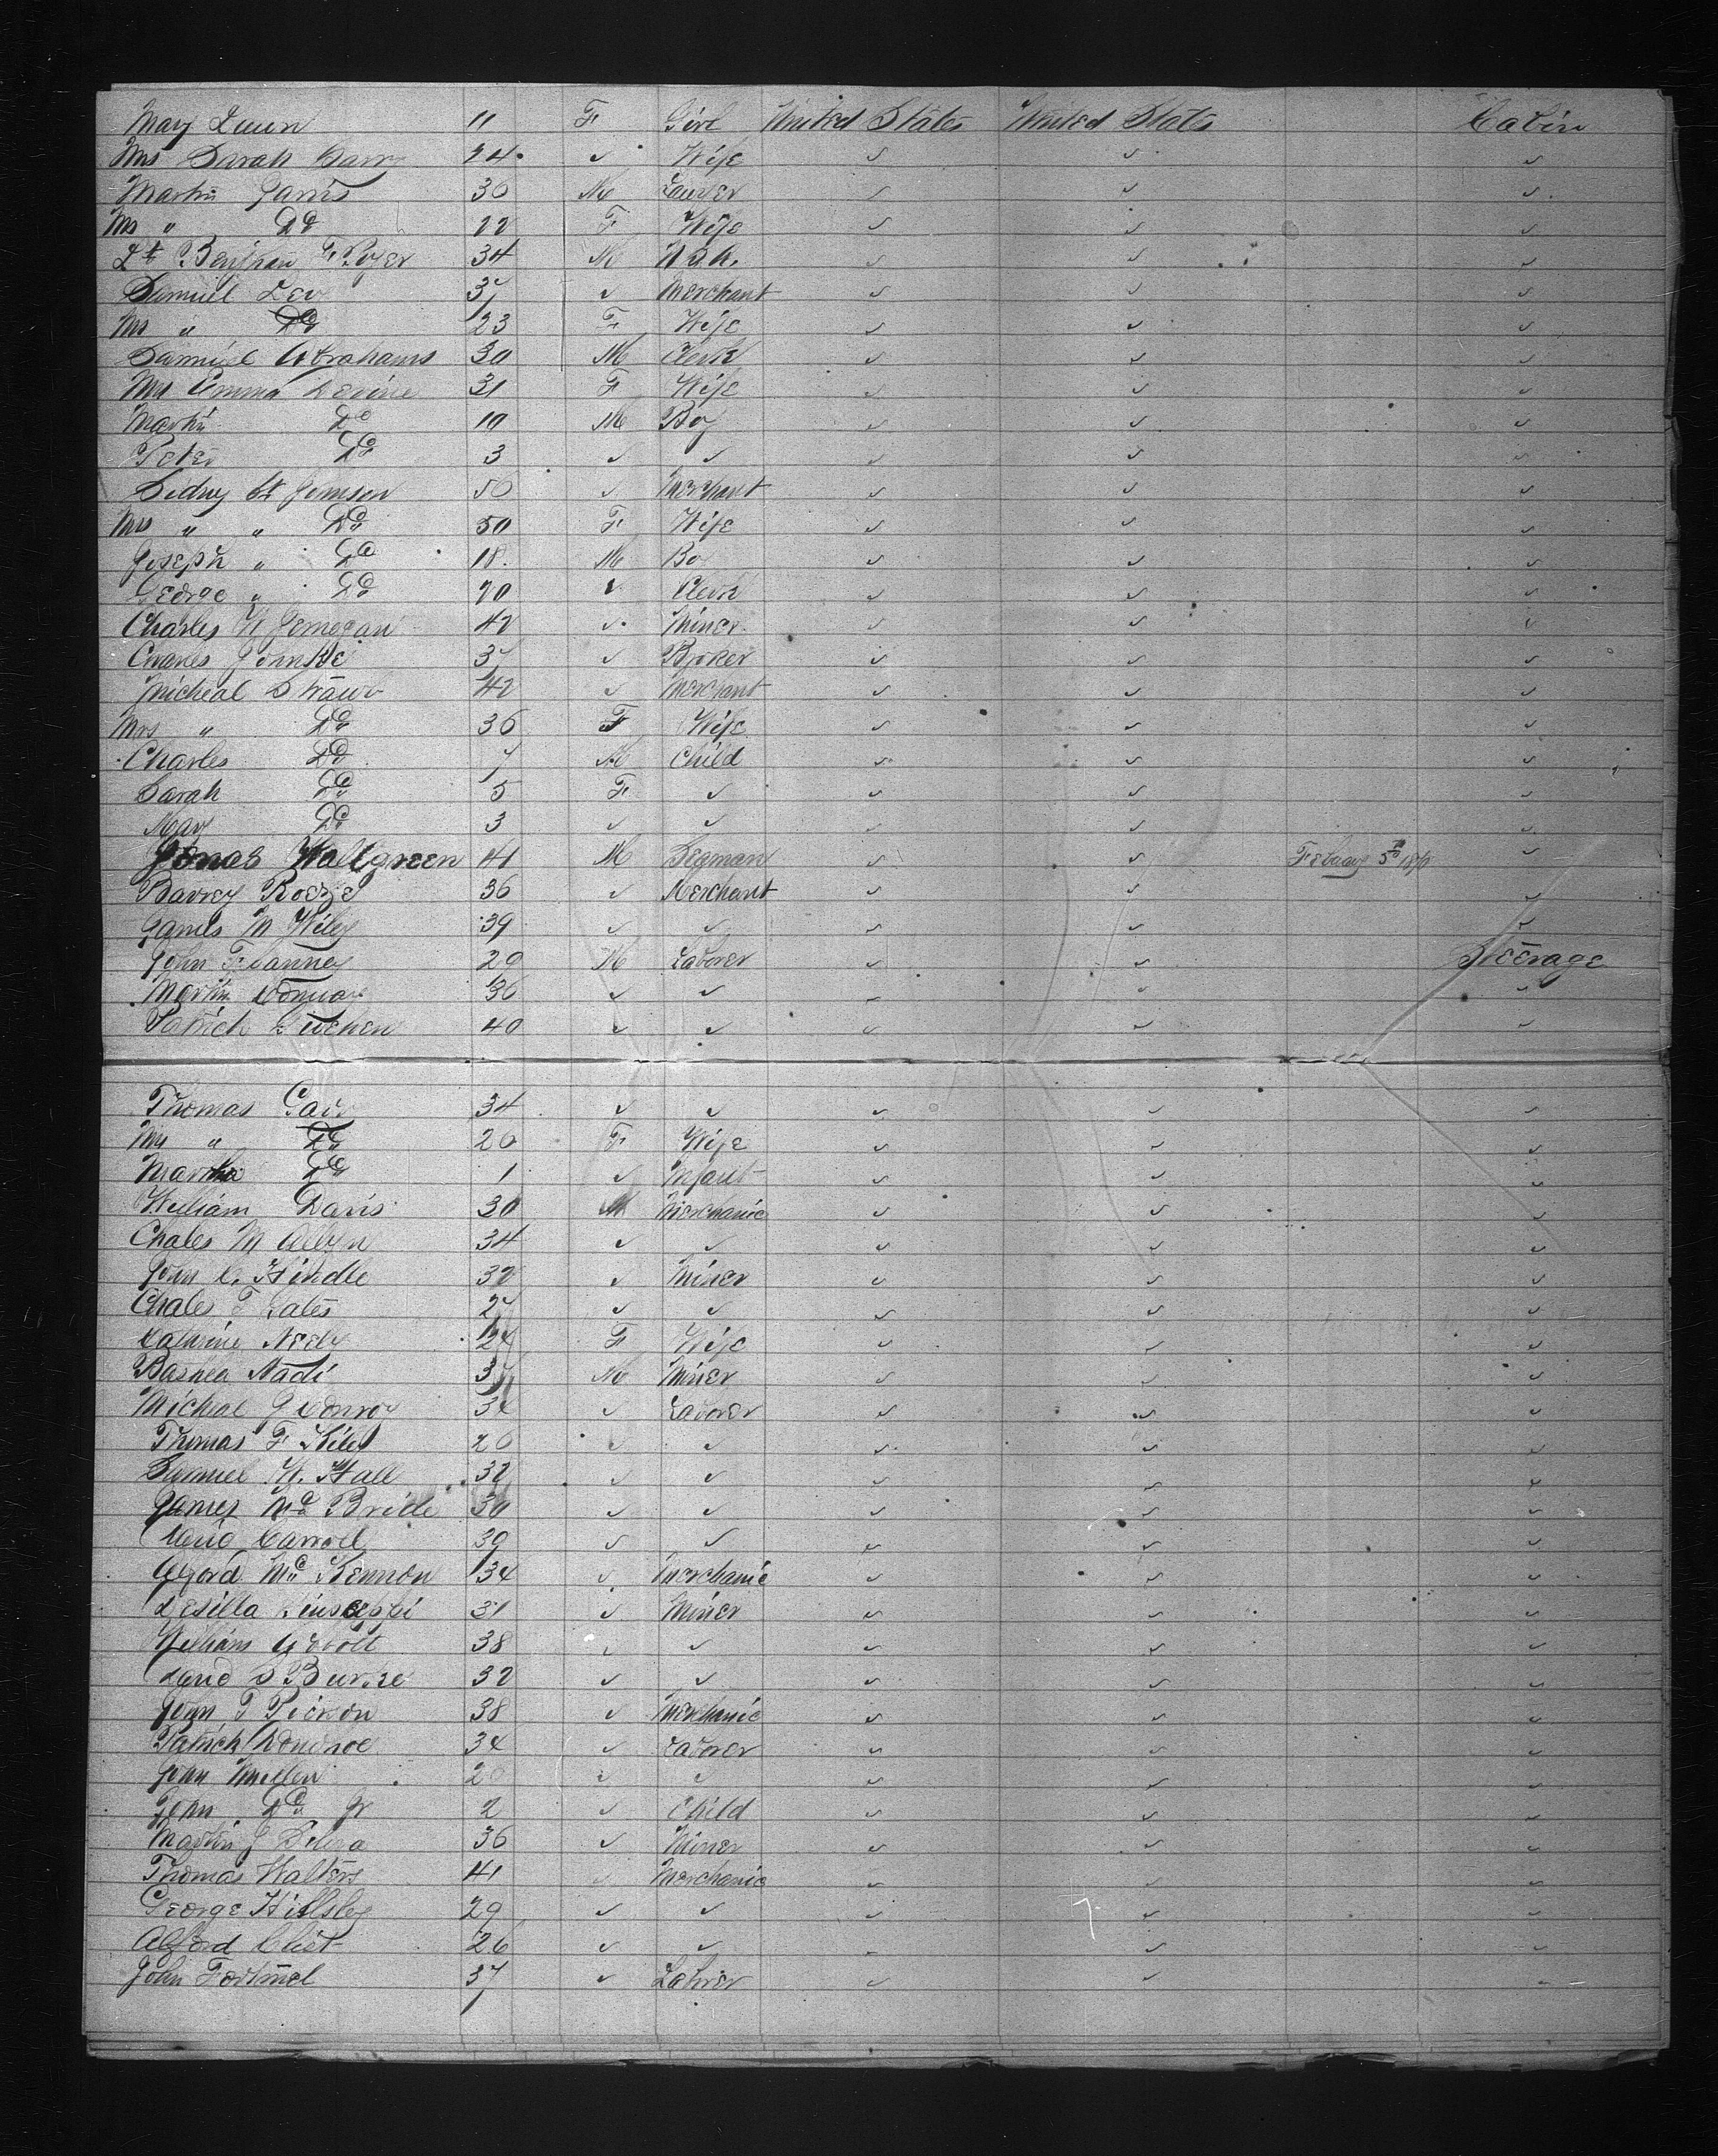 Mary Quinn 11 F Girl United States United States Cabin
Mrs Sarah Barry 24 ✓ Wife ✓ ✓ ✓
Martin Jarvis 30 M Lawyer ✓ ✓ ✓
Mrs " Do 22 F Wife ✓ ✓ ✓
Lt Benjman F Royer 34 M ✓ ✓ ✓
Samuel Lev 37 ✓ Merchant ✓ ✓ ✓
Mrs " Do 23 F Wife ✓ ✓ ✓
Samuel Abrahams 30 M Clerk ✓ ✓ ✓
Mrs Emma Levine 31 F Wife ✓ ✓ ✓
Martin Do 10 M Boy ✓ ✓ ✓
Peter Do 3 ✓ ✓ ✓ ✓ ✓
Sidney 50 ✓ Merchant ✓ ✓ ✓
Mrs " " Do 50 F Wife ✓ ✓ ✓
Joseph " Do 18 M Bo ✓ ✓ ✓
George " Do 20 ✓ Clerk ✓ ✓ ✓
Charles W Jernegan 42 ✓ Miner ✓ ✓ ✓
Charles 37 ✓ Broker ✓ ✓ ✓
Micheal Straub 42 ✓ Merchant ✓ ✓ ✓
Mrs " Do 36 F Wife ✓ ✓ ✓
Charles Do 7 M Child ✓ ✓ ✓
Sarah Do 5 F ✓ ✓ ✓ ✓
May Do 3 ✓ ✓ ✓ ✓ ✓
Jonas Wallgreen 41 M Seaman ✓ ✓ Febuary 5th ✓
Roezie 36 ✓ Merchant ✓ ✓ ✓
James M Wiley 39 ✓ ✓ ✓ ✓ ✓
John F Janney 29 M Laborer ✓ ✓ Steerage
Martin 36 ✓ ✓ ✓ ✓ ✓
Patrich 40 ✓ ✓ ✓ ✓ ✓
Thomas 34 ✓ ✓ ✓ ✓ ✓
Mrs " Do 20 F Wife ✓ ✓ ✓
Martha Do 1 ✓ Infant ✓ ✓ ✓
William Davis 30 M Merchanic ✓ ✓ ✓
Chales M Allyn 34 ✓ ✓ ✓ ✓ ✓
John C. Hindle 32 ✓ Miner ✓ ✓ ✓
Chales F 27 ✓ ✓ ✓ ✓ ✓
Cathrine Neely 24 F Wife ✓ ✓ ✓
Nadi 37 M Miner ✓ ✓ ✓
Micheal J Conroy 34 ✓ Laborer ✓ ✓ ✓
Thomas F Kiley 26 ✓ ✓ ✓ ✓ ✓
Samuel W. Hall 32 ✓ ✓ ✓ ✓ ✓
James Mc Bride 30 ✓ ✓ ✓ ✓ ✓
David Carroll 39 ✓ ✓ ✓ ✓ ✓
Alford Mc Kennon 34 ✓ Merchanic ✓ ✓ ✓
Giuseppi 31 ✓ Miner ✓ ✓ ✓
William Abbott 38 ✓ ✓ ✓ ✓ ✓
David S Burke 32 ✓ ✓ ✓ ✓ ✓
John T 38 ✓ Merchanic ✓ ✓ ✓
Patrich Donohoe 34 ✓ Laborer ✓ ✓ ✓
John Mullen 20 ✓ ✓ ✓ ✓ ✓
John Do Jr 2 ✓ Child ✓ ✓ ✓
Martin J Silva 36 ✓ Miner ✓ ✓ ✓
Thomas Walters 41 ✓ Merchanic ✓ ✓ ✓
George Hillsley 29 ✓ ✓ ✓ ✓ ✓
Alford Clist 26 ✓ ✓ ✓ ✓ ✓
John Fortmel 37 ✓ Laborer ✓ ✓ ✓